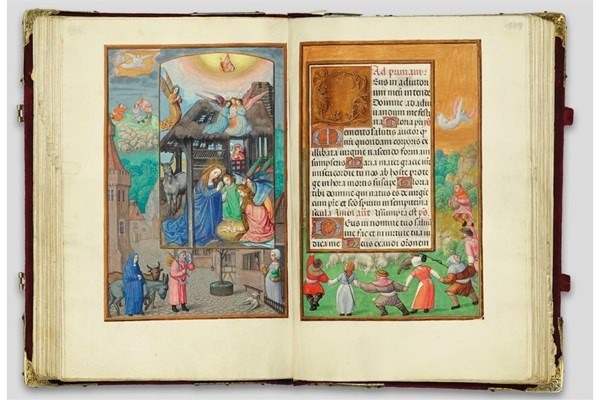 Ad primam
Deus in adiutori
um meū in tende
Domine ad adiu
uandum me festi
na Gloria pr̄i
Memento salutis auctor q̄
nr̄i quondam corporis ex
illibata virgine nascendo formam
sumpseris Maria mater gracie m̄r
misericordie tu nos ab hoste prote
ge in hora mortis suscipe Gloria
tibi domine qui natus es de virgi
ne cum pr̄e et sc̄o spiritu in sempiterna
secula Amen an̄ Assumpta est ps̄
Deus in nomine tuo saluū
me fac et in virtute tua iu
dica me Deus exaudi orōnem